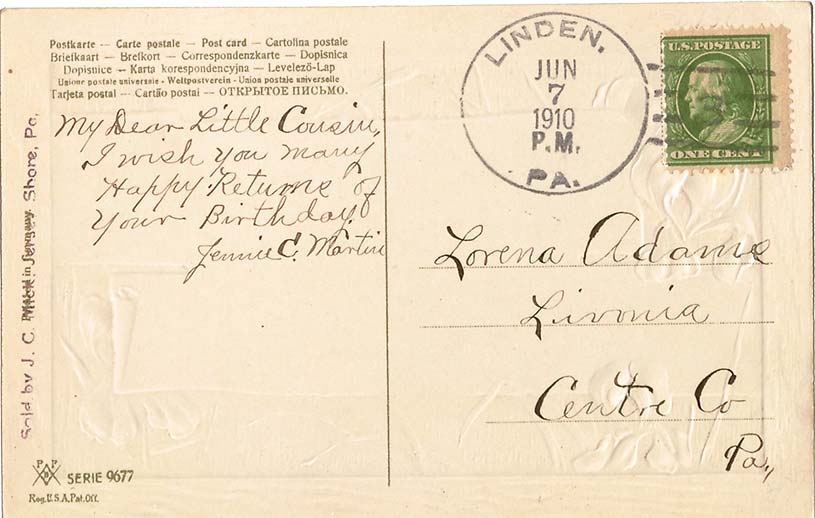 Postkarte — Carte postale — Post card — Cartolina postale
Briefkaart — Brefkort — Correspondenzkarte — Dopisnica
Dopisnice — Karta korespondencyjna — Levelező-Lap
Unione postale universale - Weltpostverein - Union postale universelle
Tarjeta postal — Cartão postal — ОТКРЫТОЕ ПИСЬМО.
My Dear Little Cousin,
I wish you many
Happy Returns of
Your Birthday.
Jennie C. Martin
Sold by J. C. Jersey Shore, Pa.
in Germany
P P
B
SERIE 9677
Reg.U.S.A.Pat.Off.
LINDEN,
JUN
7
1910
P.M.
PA.
U.S. POSTAGE
ONE CENT
Lorena Adams
Livonia
Centre Co
Pa,